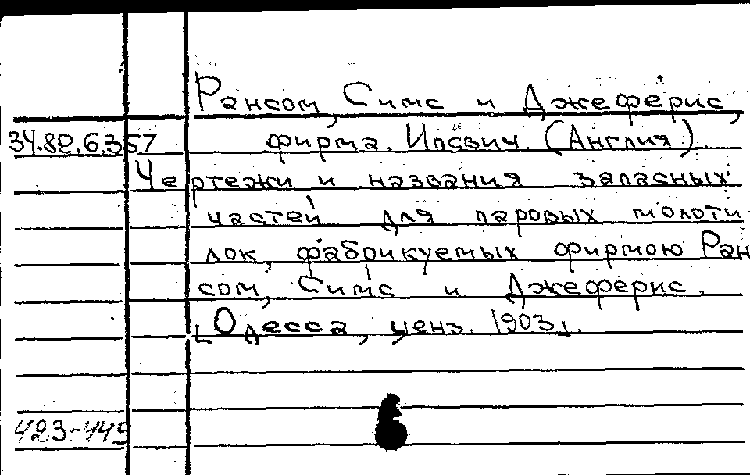 Рансом, Симс и Джеферис,
34.82.6.357 фирма. Ипсвич. (Англия).
Чертежи и названия запасных
частей для паровых молоти
лок, фабрикуемых фирмою Ран
сом, Симс и Джеферис.
[Одесса, ценз. 1903].
423-449